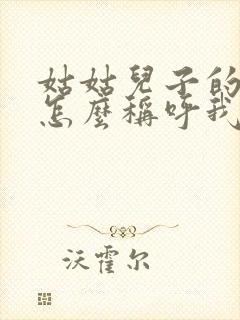 姑姑兒子的
怎麼稱呼我
沃霍尔